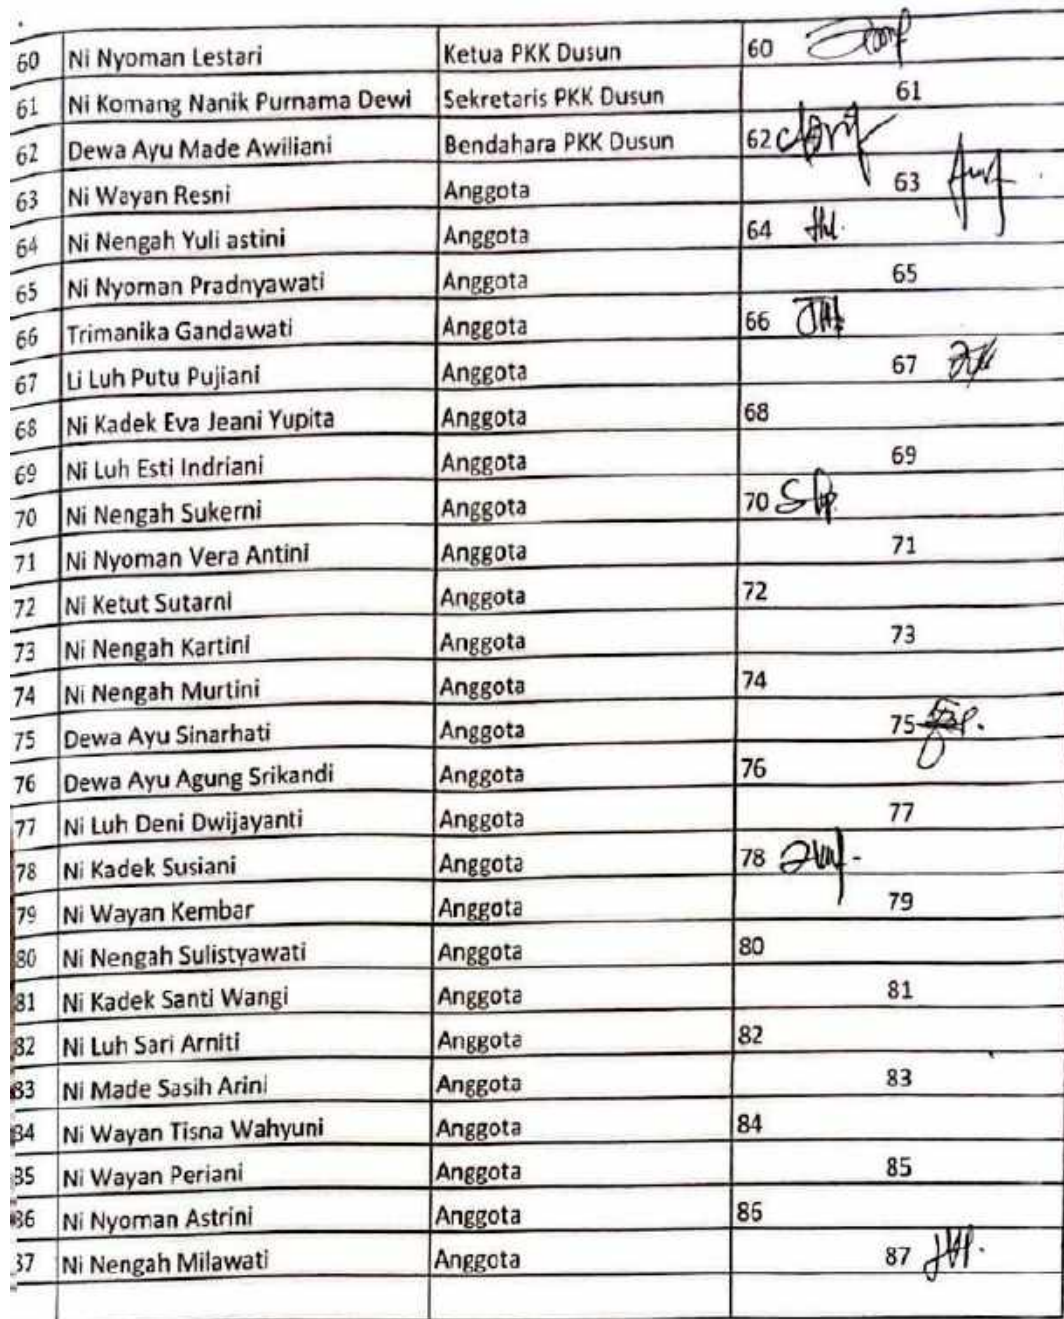 60 Ni Nyoman Lestari Ketua PKK Dusun 60
61 Ni Komang Nanik Purnama Dewi Sekretaris PKK Dusun 61
62 Dewa Ayu Made Awiliani Bendahara PKK Dusun 62
63 Ni Wayan Resni Anggota 63
64 Ni Nengah Yuli astini Anggota 64
65 Ni Nyoman Pradnyawati Anggota 65
66 Trimanika Gandawati Anggota 66
67 Li Luh Putu Pujiani Anggota 67
68 Ni Kadek Eva Jeani Yupita Anggota 68
69 Ni Luh Esti Indriani Anggota 69
70 Ni Nengah Sukerni Anggota 70
71 Ni Nyoman Vera Antini Anggota 71
72 Ni Ketut Sutarni Anggota 72
73 Ni Nengah Kartini Anggota 73
74 Ni Nengah Murtini Anggota 74
75 Dewa Ayu Sinarhati Anggota 75
76 Dewa Ayu Agung Srikandi Anggota 76
77 Ni Luh Deni Dwijayanti Anggota 77
78 Ni Kadek Susiani Anggota 78
79 Ni Wayan Kembar Anggota 79
80 Ni Nengah Sulistyawati Anggota 80
81 Ni Kadek Santi Wangi Anggota 81
82 Ni Luh Sari Arniti Anggota 82
83 Ni Made Sasih Arini Anggota 83
84 Ni Wayan Tisna Wahyuni Anggota 84
85 Ni Wayan Periani Anggota 85
86 Ni Nyoman Astrini Anggota 86
87 Ni Nengah Milawati Anggota 87